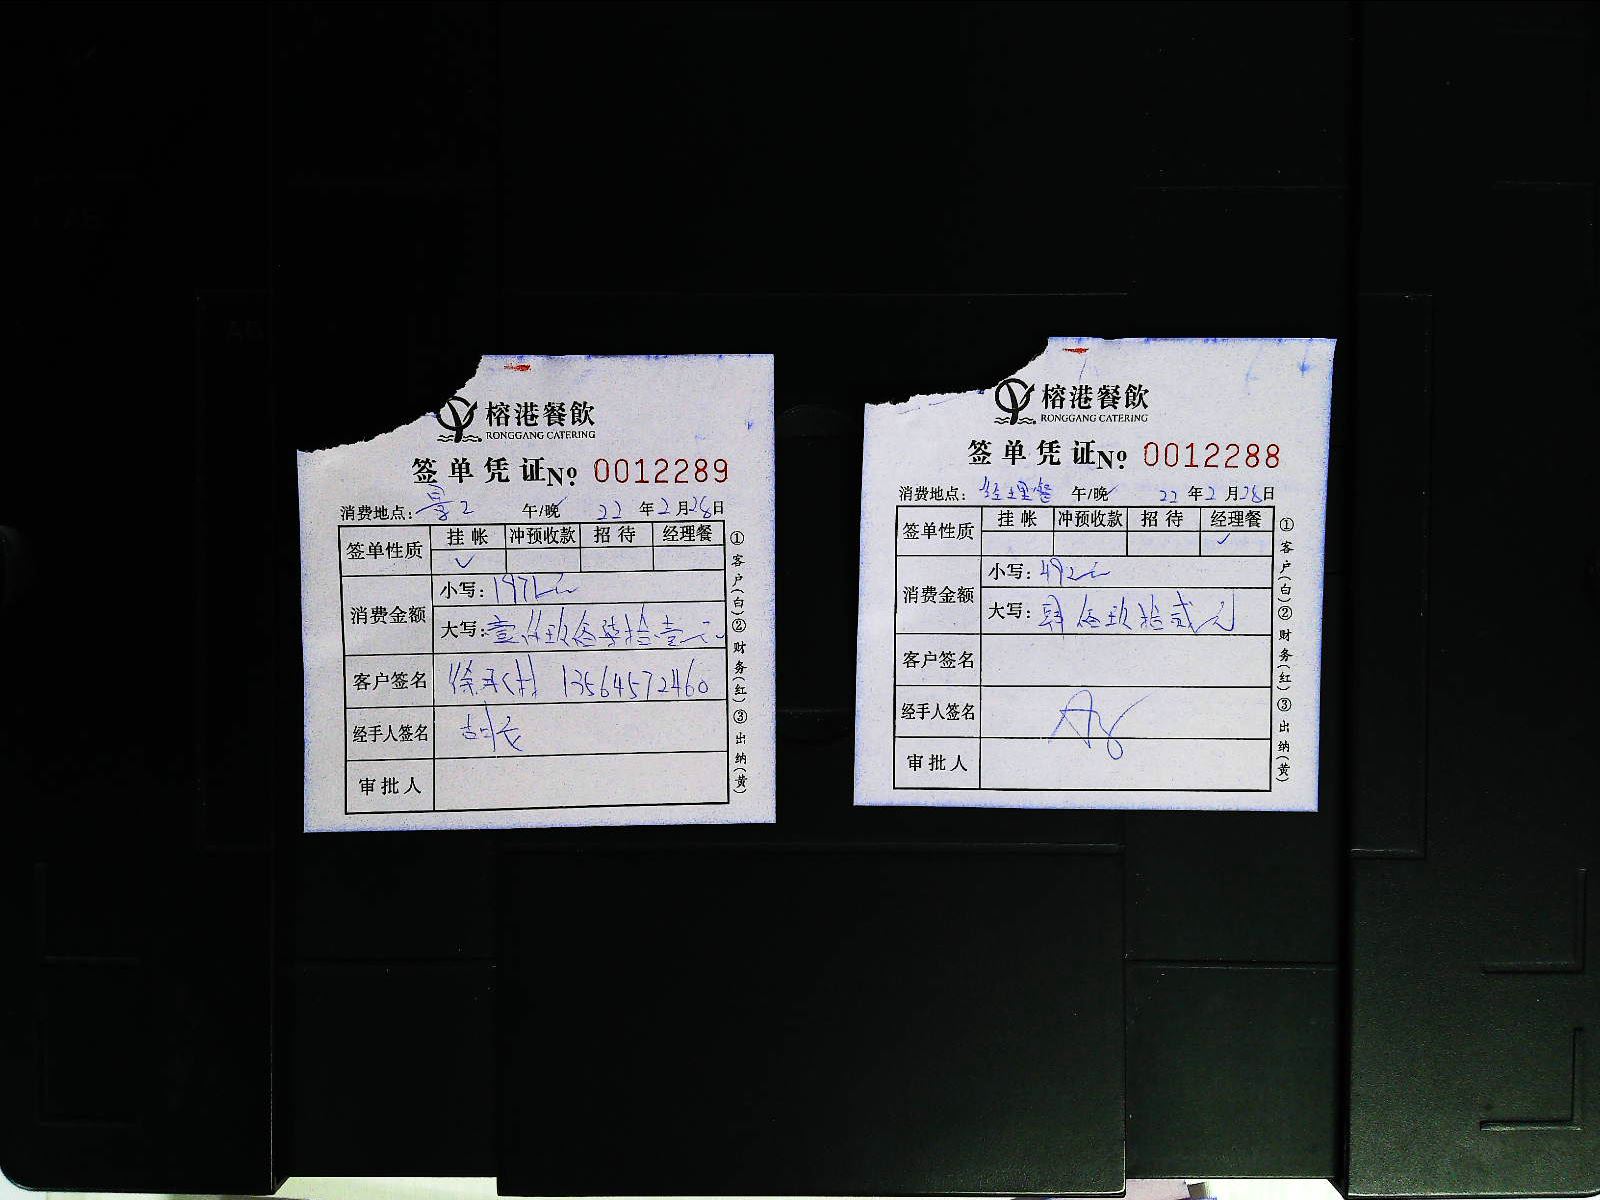 榕港餐飲
RONGGANG CATERING
签单凭证 No 0012289
消费地点：景2 午/晚 22年2月28日
签单性质 挂帐 冲预收款 招待 经理餐
✓
消费金额
小写：1971元
大写：壹仟玖佰柒拾壹元
客户签名 13564572460
经手人签名
审批人
①客户(白)②财务(红)③出纳(黄)
榕港餐飲
RONGGANG CATERING
签单凭证 No 0012288
消费地点：经理餐 午/晚 22年2月28日
签单性质 挂帐 冲预收款 招待 经理餐
✓
消费金额
小写：492元
大写：肆佰玖拾贰元
客户签名
经手人签名
审批人
①客户(白)②财务(红)③出纳(黄)